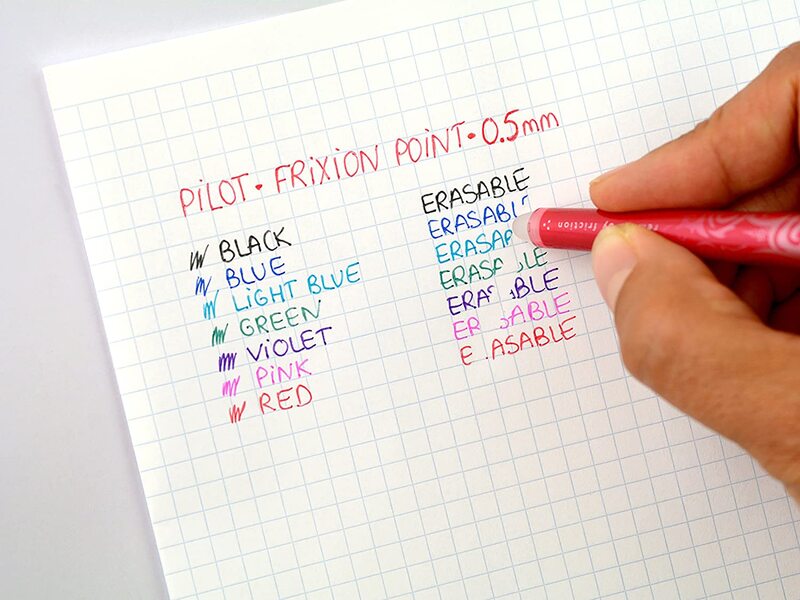 PILOT · FRIXION POINT · 0.5mm
BLACK
BLUE
LIGHT BLUE
GREEN
VIOLET
PINK
RED
ERASABLE
ERASABL
ERASA
ERASA LE
ERA BLE
ER ABLE
E ASABLE
by friction